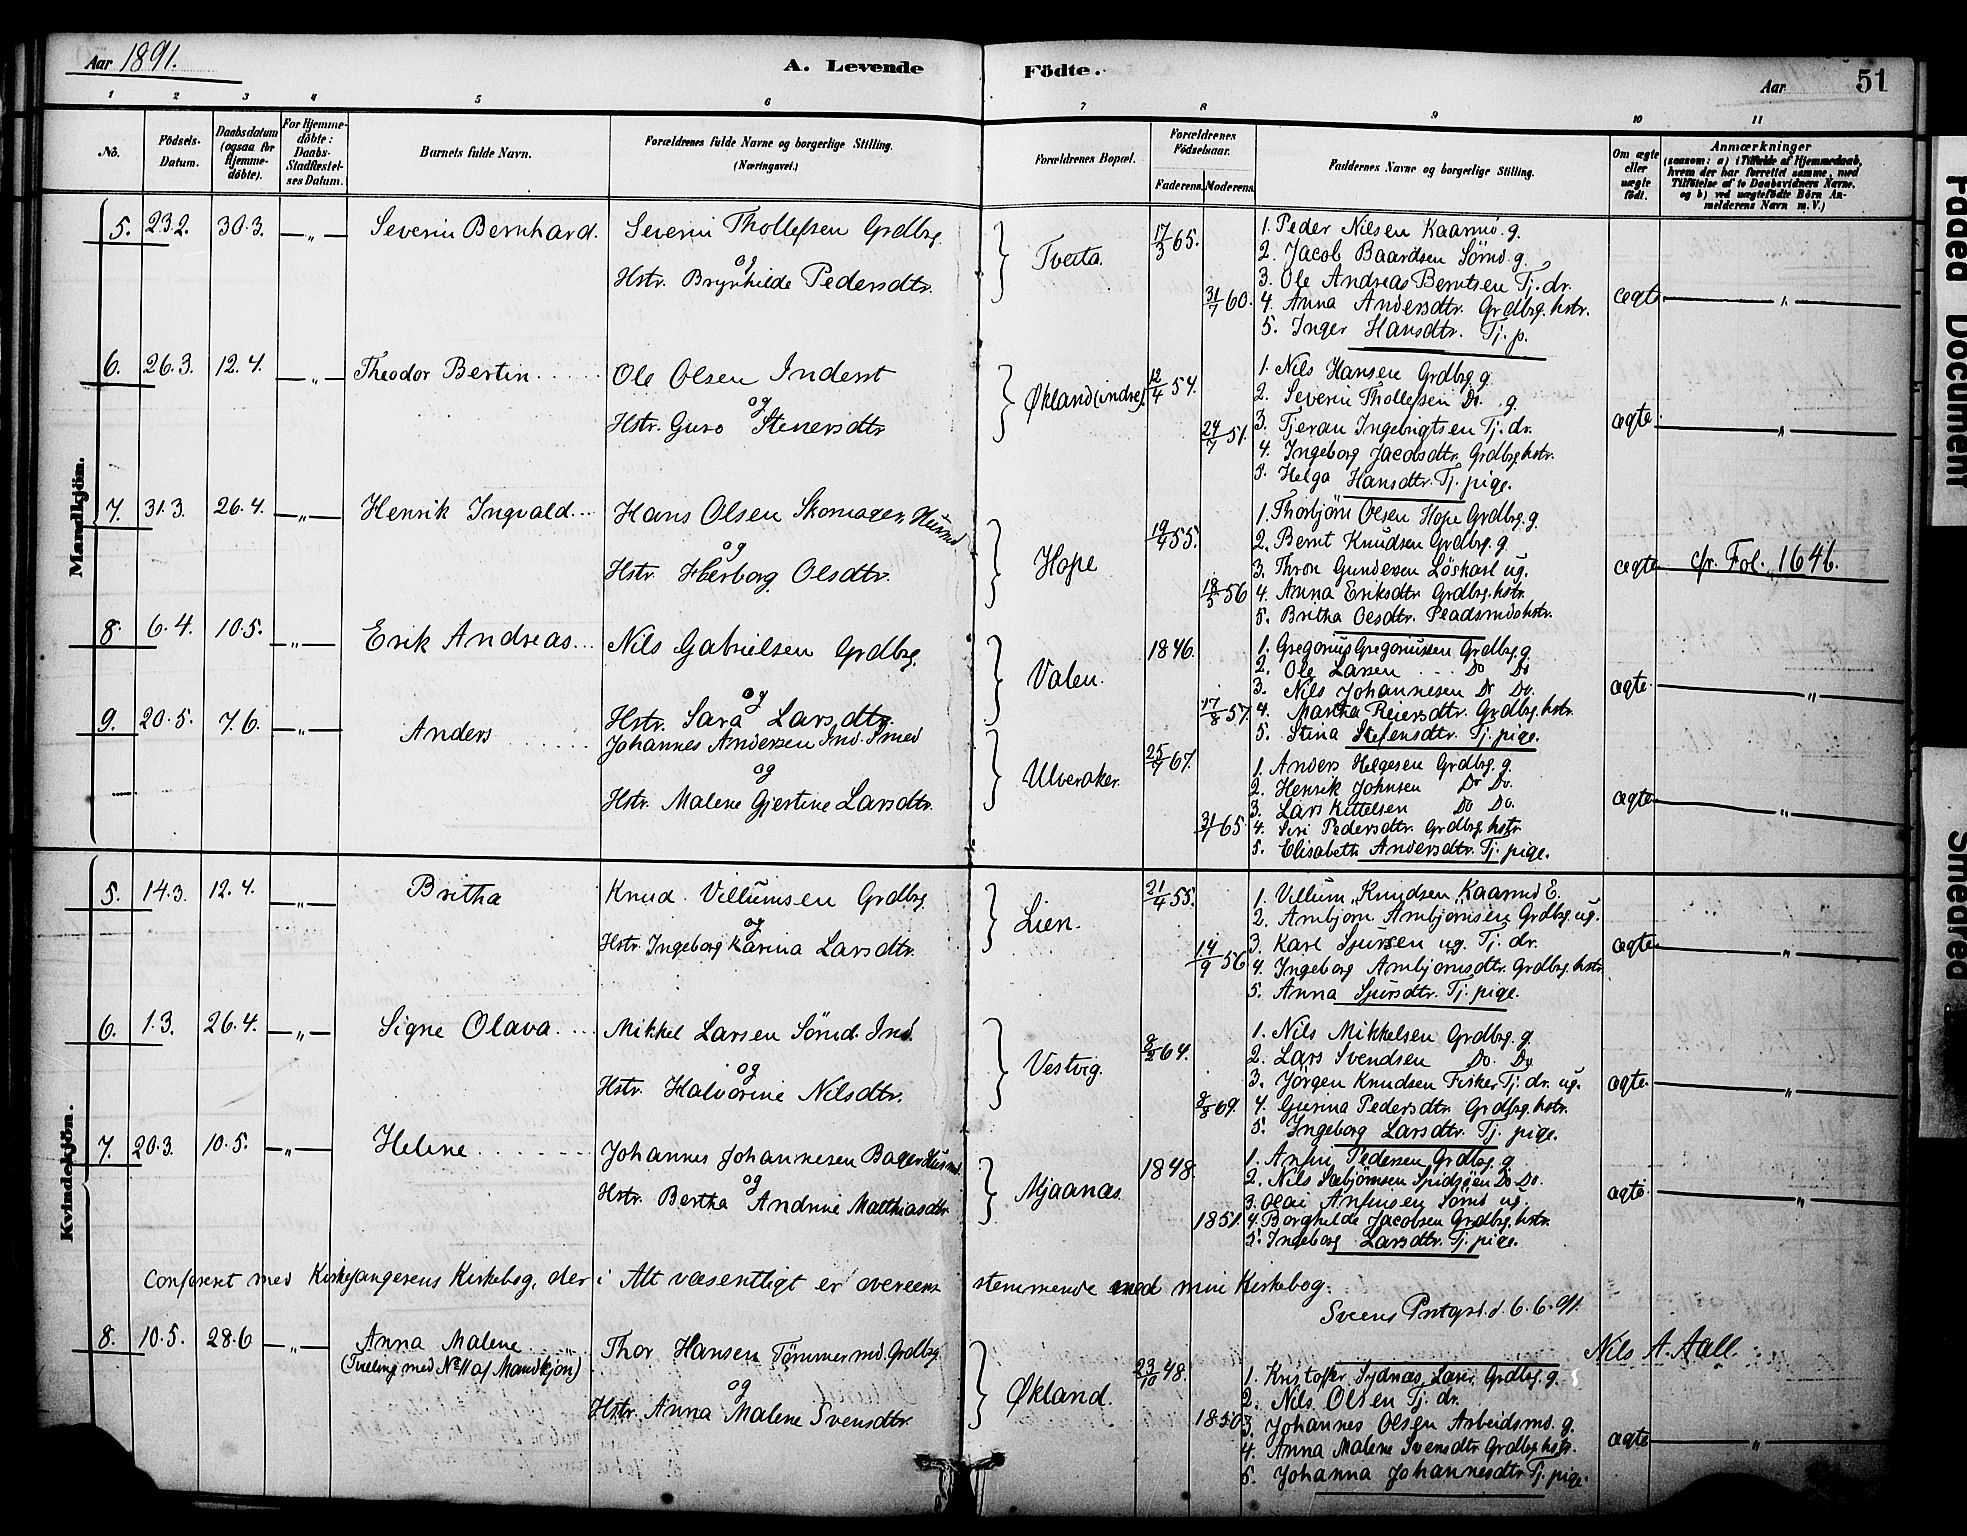 Aar 1891.
A. Levende Födte.
Aar 51
1 2 3 4 5 6 7 8 9 10 11
No.
Födsels-Datum.
Daabsdatum (ogsaa for Hjemme-döbte).
For Hjemme-döbte: Daabs-Stadfæstel-ses Datum.
Barnets fulde Navn.
Forældrenes fulde Navne og borgerlige Stilling. (Næringsvei.)
Forældrenes Bopæl.
Forældrenes Födselsaar.
Faderens. Moderens.
Faddernes Navne og borgerlige Stilling.
Om ægte eller uægte födt.
Anmærkninger
(saasom: a) i Tilfælde af Hjemmedaab, hvem der har forrettet samme, med Tilföielse af to Daabsvidners Navne, og b) ved uægtefödte Börn Anmelderens Navn m. V.)
Mandkjön.
5. 23.2. 30.3. —„— Severin Bernhard. Severin Thollefsen Grdbrg.
og
Hstr. Brynhilde Pedersdtr.
Tveita. 17/3 65. 31/7 60.
1. Peder Nilsen Kaarmd. g.
2. Jacob Baardsen Sömd. g.
3. Ole Andreas Berntsen Tj. dr.
4. Anna Andersdtr. Grdbrg. hstr.
5. Inger Hansdtr. Tj. p.
ægte „
6. 26.3. 12.4. —„— Theodor Bertin Ole Olsen Inderst
og
Hstr. Guro Stenersdtr
Økland (indre) 12/4 54. 24/7 51.
1. Nils Hansen Grdbrg. g.
2. Severin Thollefsen Do. g.
3. Tjeran Ingebrigtsen Tj. dr.
4. Ingeborg Jacobsdtr. Grdbrg. hstr.
5. Helga Hansdtr. Tj. pige.
ægte. „
7. 31.3. 26.4. —„— Henrik Ingvald Hans Olsen Skomager, Husmd
og
Hstr. Herborg Olsdtr.
Hope 19/4 55. 18/5 56
1. Thorbjörn Olsen Hope Grdbrg. g.
2. Bernt Knudsen Grdbrg. g.
3. Thron Gundersen Löskarl ug.
4. Anna Eriksdtr. Grdbrg. hstr.
5. Britha Olsdtr. Pladsmdshstr.
ægte cfr. Fol. 164 b.
8. 6.4. 10.5. —„— Erik Andreas Nils Gabrielsen Grdbrg.
og
Hstr. Sara Larsdtr.
Valen. 1846. 17/8 57.
1. Gregorius Gregoriussen Grdbrg. g.
2. Ole Larsen Do Do
3. Nils Johannesen Do Do.
4. Martha Reiersdtr. Grdbrg. hstr.
5. Stina Stefensdtr. Tj. pige.
ægte. „
9. 20.5. 7.6. —„— Anders Johannes Andersen Ind. Smed
og
Hstr. Malene Gjertine Larsdtr.
Ulveraker. 25/7 67. 31/7 65
1. Anders Helgesen Grdbrg. g.
2. Henrik Johnsen Do Do.
3. Lars Kittelsen Do Do.
4. Siri Pedersdtr. Grdbrg. hstr.
5. Elisabeth Andersdtr. Tj. pige.
ægte „
Kvindekjön.
5. 14.3. 12.4. —„— Britha Knud Villumsen Grdbrg.
og
Hstr. Ingeborg Karina Larsdtr.
Lien. 21/4 55. 14/9 56
1. Villum Knudsen Kaarmd E.
2. Arnbjørn Arnbjørnsen Grdbrg. ug.
3. Karl Sjursen ug. Tj. dr.
4. Ingeborg Arnbjørnsdtr. Grdbrg. hstr
5. Anna Sjursdtr. Tj. pige.
ægte „
6. 1.3. 26.4. —„— Signe Olava Mikkel Larsen Sömd. Ind.
og
Hstr. Halvorine Nilsdtr.
Vestvig. 8/2 64. 8/8 69.
1. Nils Mikkelsen Grdbrg. g.
2. Lars Svendsen Do. Do
3. Jörgen Knudsen Fisker Tj. dr. ug.
4. Gurina Pedersdtr. Grdbrg. hstr.
5. Ingeborg Larsdtr. Tj. pige.
ægte. „
7. 20.3. 10.5. —„— Helene Johannes Johannesen Bager Husmd
og
Hstr. Bertha Andrine Matthiasdtr
Mjaanæs. 1848. 1851.
1. Anfin Pedersen Grdbrg. g.
2. Nils Sæbjörnsen Spidsöen Do Do.
3. Olai Anfinsen Sömd ug.
4. Borghilde Jacobsen Grdbrg. hstr.
5. Ingeborg Larsdtr. Tj. pige.
ægte „
Conferert med Kirkesangerens Kirkebog, der i Alt væsentligt er overeens stemmende med min Kirkebog.
Sveens Prstgrd. d. 6.6.91.
Nils A. Aall.
8. 10.5. 28.6 —„— Anna Malene
(Tvilling med No 11 af Mandkjön)
Thor Hansen Tømmermd. Grdbrg
og
Hstr. Anna Malene Svensdtr.
Økland. 23/10 48. 1850
1. Kristoffer Sydnæs, Lærer, Grdbrg. g.
2. Nils Olsen Tj. dr.
3. Johannes Olsen Arbeidsmd. g.
4. Anna Malene Svensdtr Grdbrg. hstr.
5. Johanna Johannesdtr. Tj. pige.
ægte „
Faded Document
Smeared